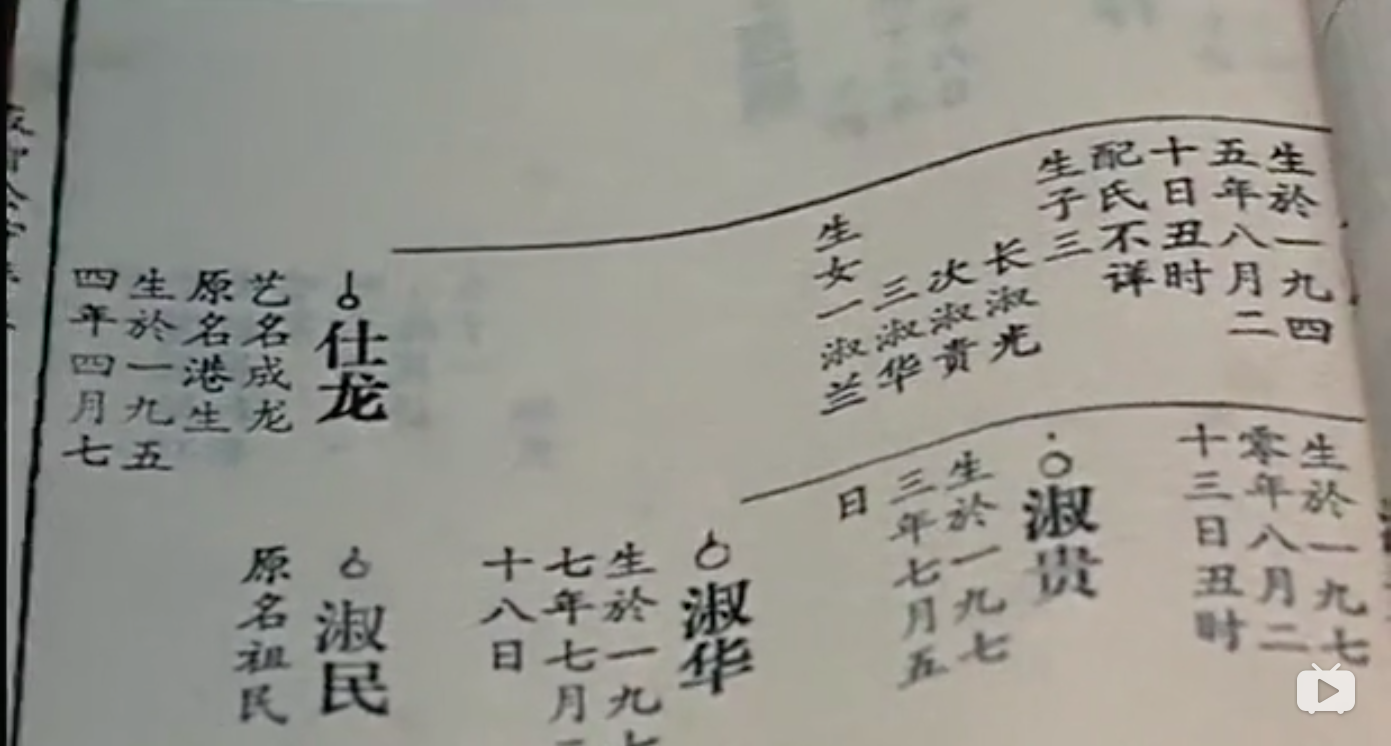 生於一九四
五年八月二
十日丑时
配氏不详
生子三
长淑光
次淑贵
三淑华
生女一淑兰
仕龙
艺名成龙
原名港生
生於一九五
四年四月七
生於一九七
零年八月二
十三日丑时
淑贵
生於一九七
三年七月五
日
淑华
生於一九七
七年七月二
十八日
淑民
原名祖民